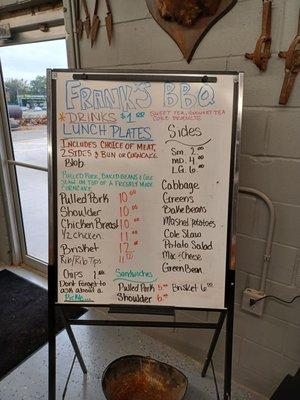 FRANK'S BBQ
DRINKS $1.00 SWEET TEA,
COKE PRODUCTS
LUNCH PLATES
INCLUDES CHOICE OF MEAT,
2 SIDES & BUN OR CORNCAKE
Blob
PULLED PORK, BAKED BEANS & COLE
SLAW ON TOP OF A FRESHLY MADE
CORNCAKE
Pulled Pork 10.00
Shoulder 10.00
Chicken Breast 10.00
1/2 chicken 11.00
Brisket 12.00
Rib/Rib Tips 11.00
Chips 1.00
Don't forget to
ask about a
Pickle....
Sides
Sm. 2.00
MD. 4.00
LG. 6.00
Cabbage
Greens
Bake Beans
Mashed potatoes
Cole Slaw
Potato Salad
Mac & Cheese
Green Bean
Sandwiches
Pulled Pork 5.00 Brisket 6.00
Shoulder 6.00